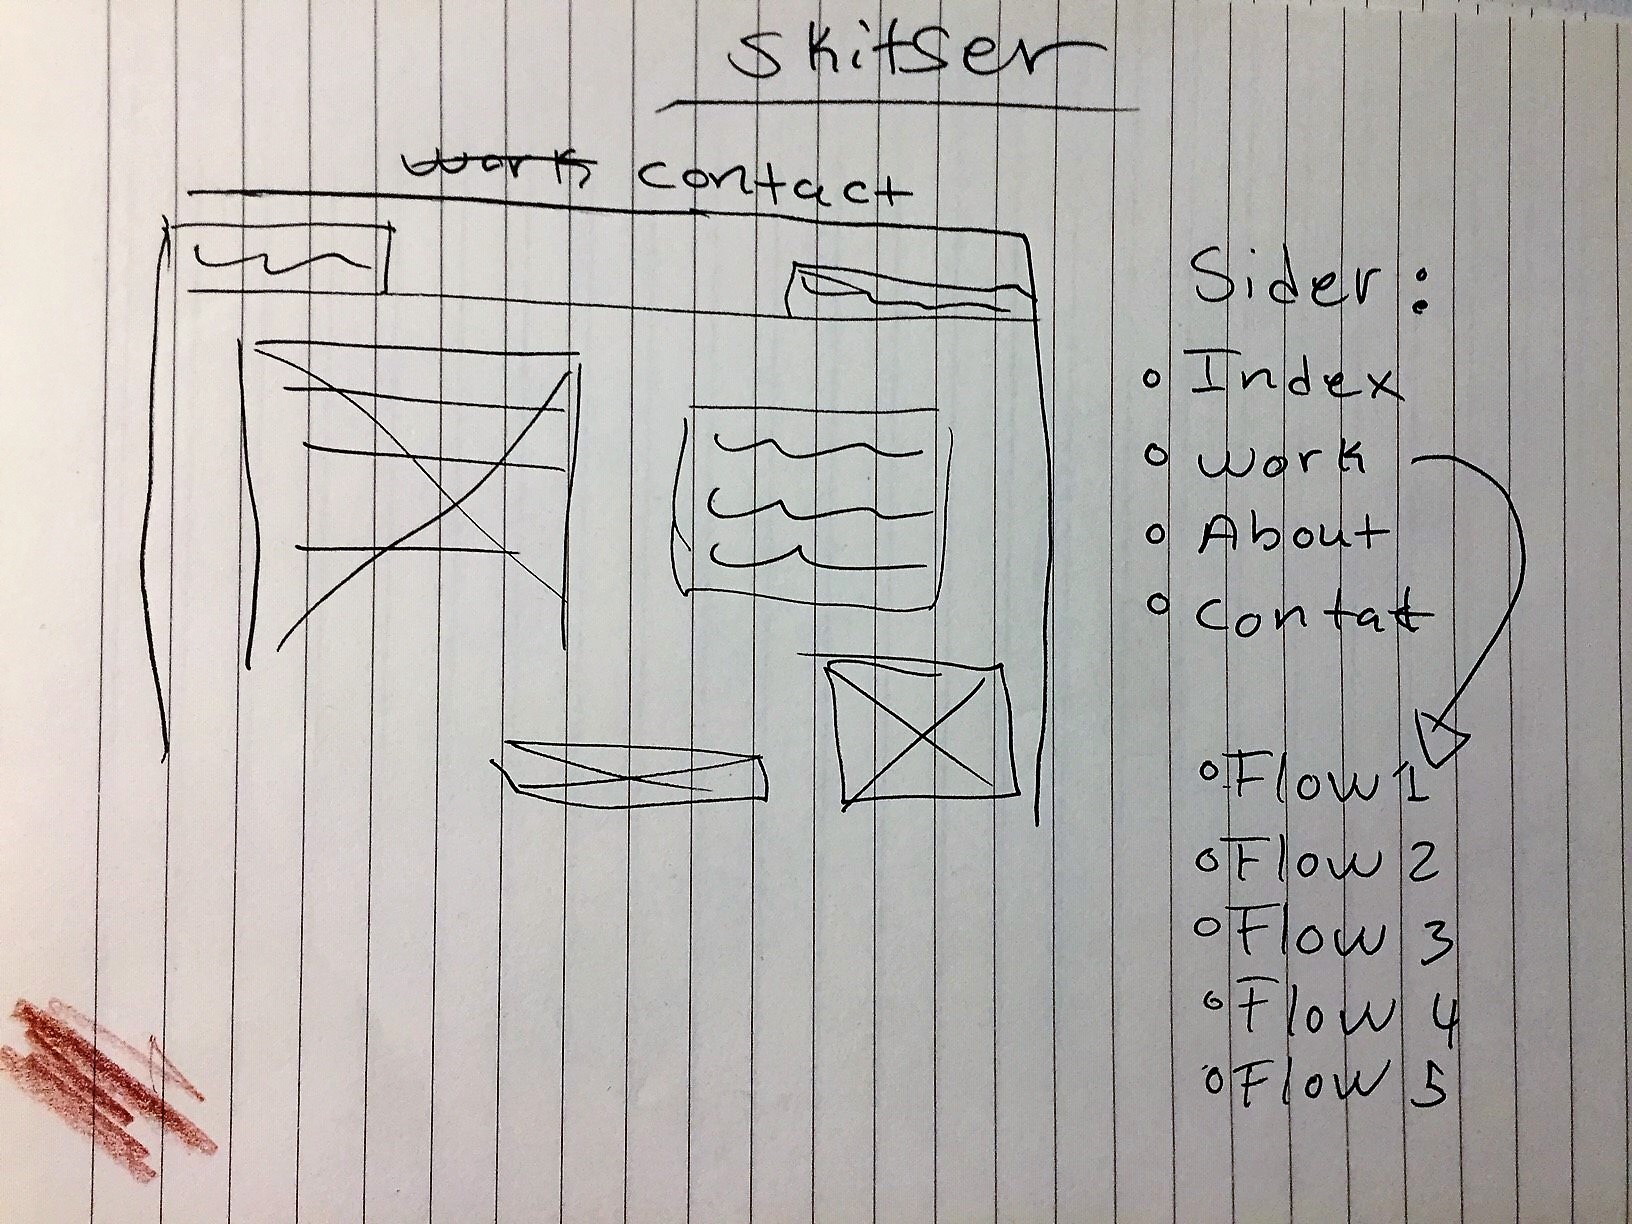 skitser
work contact
Sider:
Index
work
About
Contat
Flow 1
Flow 2
Flow 3
Flow 4
Flow 5